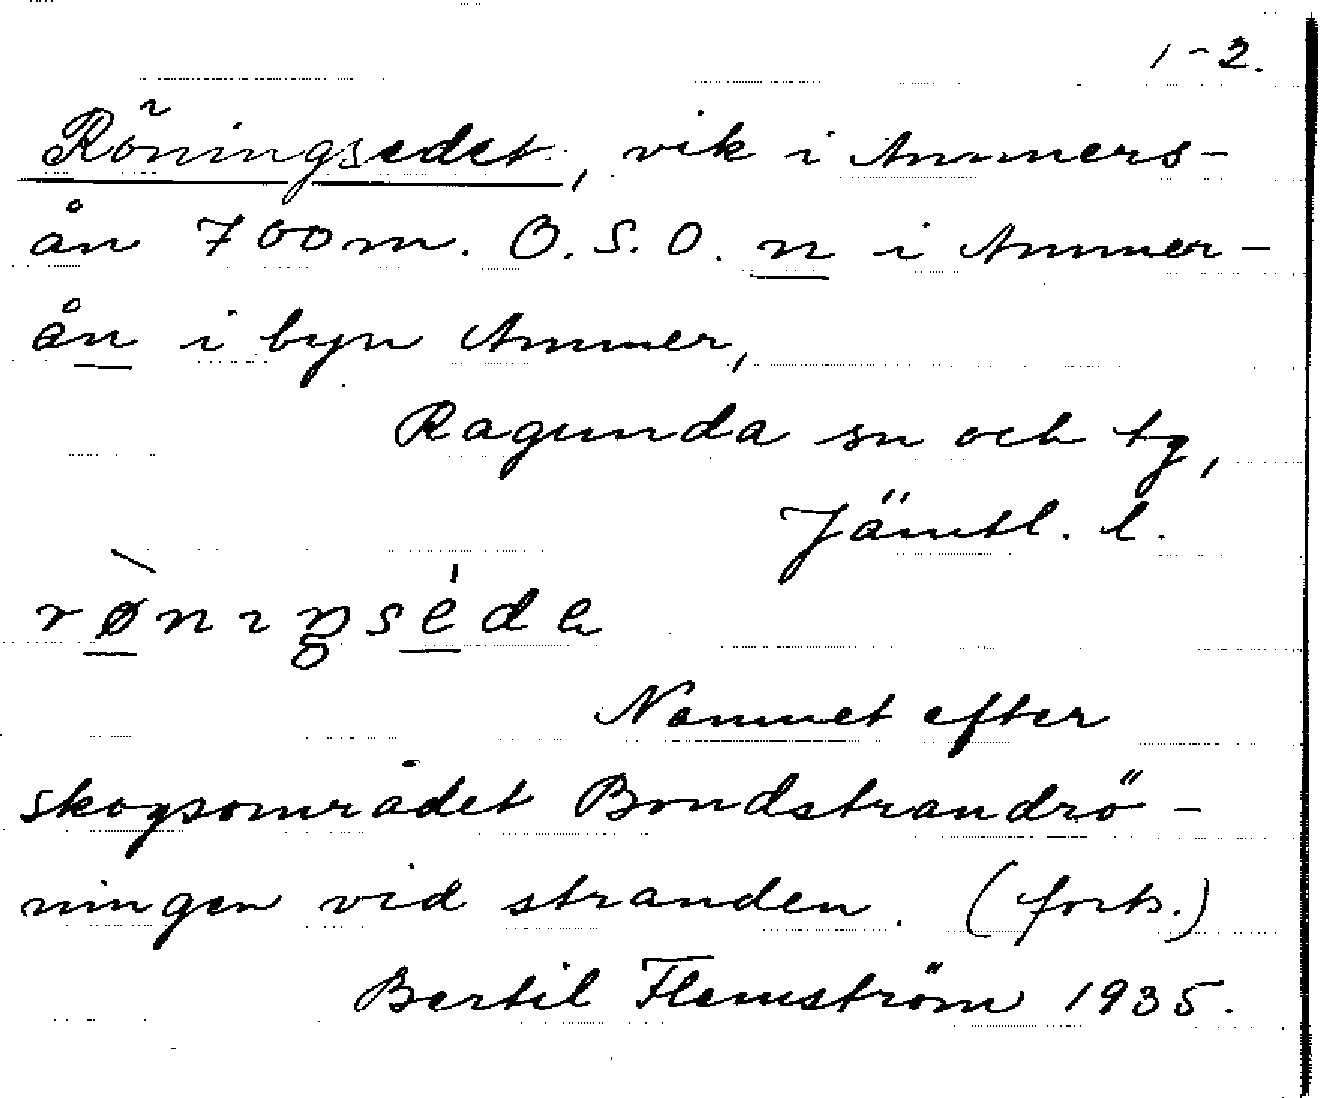 1-2.
Röningsedet, vik i Ammers-
ån 700 m. O.S.O. n i Ammer-
ån i byn Ammer,
Ragunda sn och tg,
Jämtl. l.
rø̀nıŋséde
Namnet efter
skogsområdet Bondstrandrö-
ningen vid stranden. (forts.)
Bertil Flemström 1935.